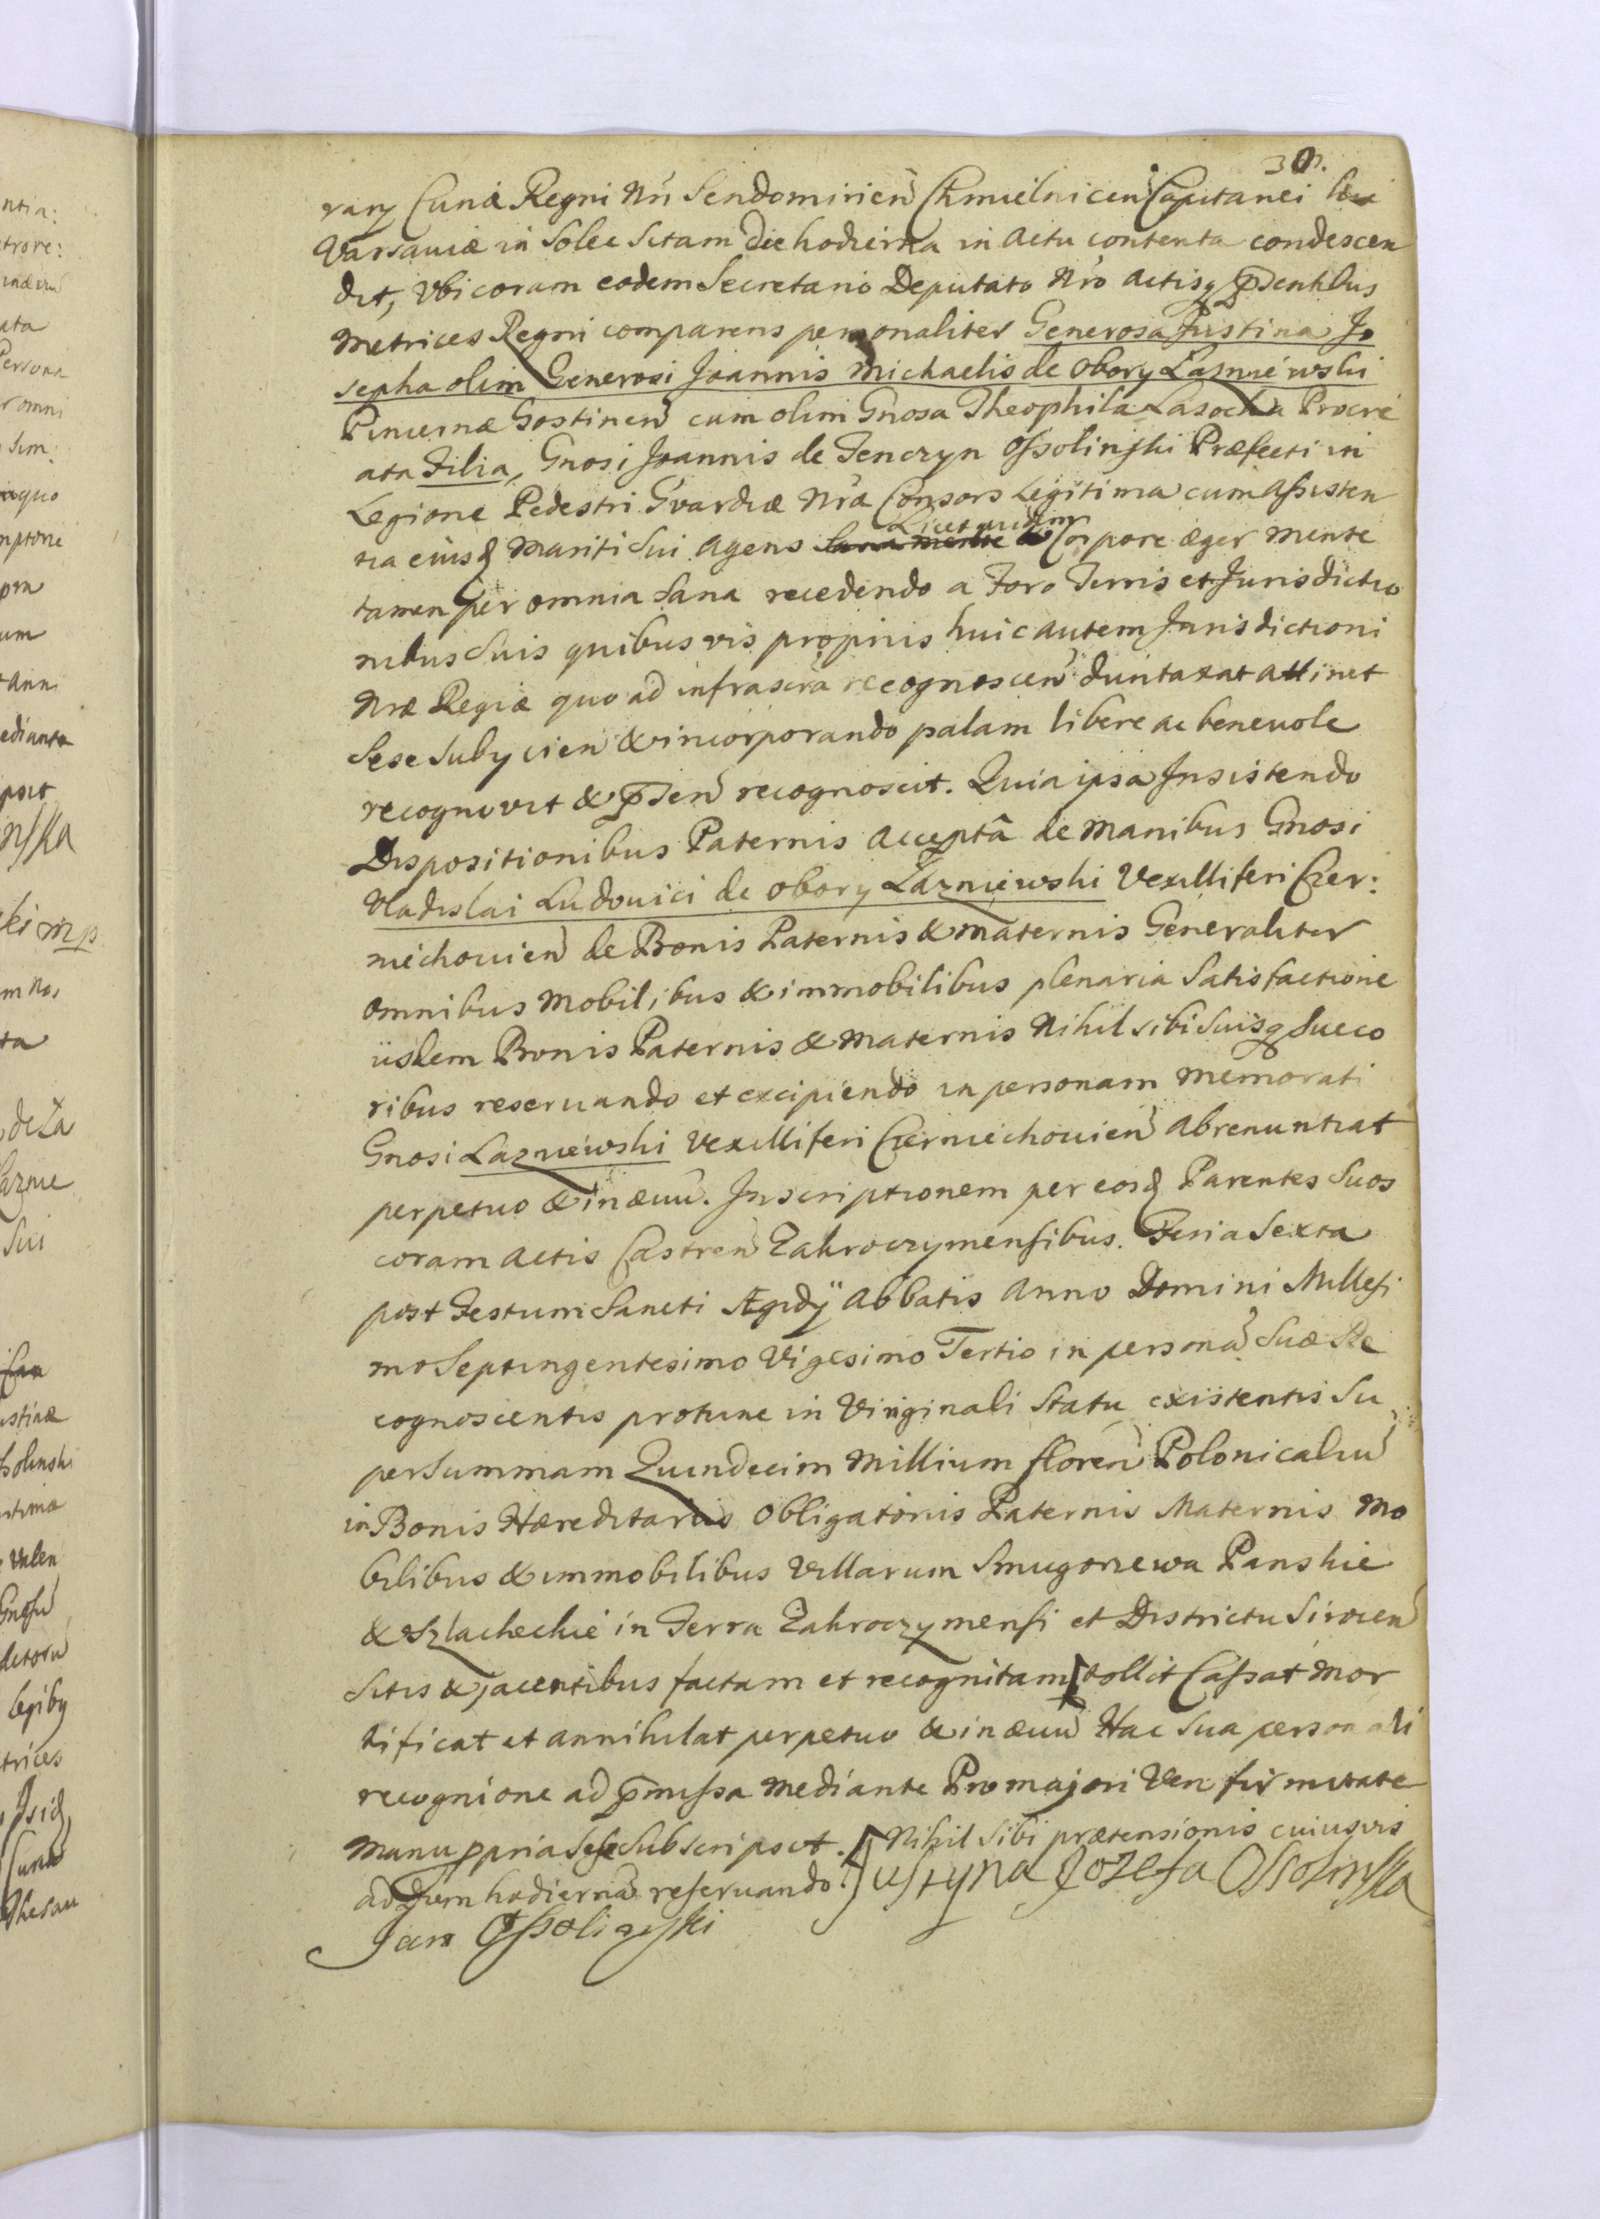 30.
rarÿ Curiæ Regni Nri Sendomirien Chmielnicen Capitanei
Varsaviæ in Solec Sitam die hodierna in Actu contenta condescen
dit, Vbi coram eodem Secretario Deputato Nro Actisq pñtibus
Metrices Regni comparens personaliter Generosa Justina Jo
sepha olim Generosi Joannis Michaelis de Obory Łazniewski
Pincernæ Gostinen cum olim Gnosa Theophila Lasocka Procre
ata Filia, Gnosi Joannis de Tenczyn Ossolinski Præfecti in
Legione Pedestri Gvardiæ Nræ Consors Legitima cum Assisten
tia eiusd Mariti Sui Agens Sana mente Licet quidem Corpore æger mente
tamen per omnia Sana recedendo a Foro Terris et Jurisdictio
nibus Suis quibus vis proprijs huic autem Jurisdictioni
Nræ Regiæ quo ad infrascra recognoscen duntaxat attinet
Sese Subÿcien & incorporando palam libere ac benevole
recognovit & pñten recognoscit. Quia ipsa Insistendo
Dispositionibus Paternis Acceptâ de Manibus Gnosi
Vladislai Ludovici de Obory Łazniewski Vexilliferi Czer:
niechovien de Bonis Paternis & Maternis Generaliter
Omnibus Mobilibus & immobilibus plenaria Satisfactione
iisdem Bonis Paternis & Maternis Nihil sibi Suisq Succo
ribus reservando et excipiendo in personam Memorati
Gnosi Łazniewski Vexilliferi Czerniechovien Abrenuntiat
perpetuo & in ævu. Inscriptionem per eosd Parentes Suos
coram Actis Castren Zakroczymensibus. Feria Sexta
post Festum Sancti Ægidÿ Abbatis Anno Domini Millesi
mo Septingentesimo Vigesimo Tertio in persona Suæ Re
cognoscentis protunc in Virginali Statu existentis Su
per Summam Quindecim Millium floren Polonicaliu
in Bonis Hæreditarÿs Obligatorÿs Paternis Maternis Mo
bilibus & immobilibus Villarum Smugorzewa Panskie
& Szlacheckie in Terra Zakroczymensi et Districtu Sirocen
Sitis & jacentibus factam et recognitam tollit Cassat Mor
tificat et Annihilat perpetuo & in ævu Hac Sua personali
recognione ad pmissa Mediante Pro majori Vero firmitate
Manu ppria Sese Subscripsit. Nihil Sibi prætensionis cuiusvis
ad Dum hodierna reservando. Justyna Jozefa Ossolinska
Jan Ossolinski